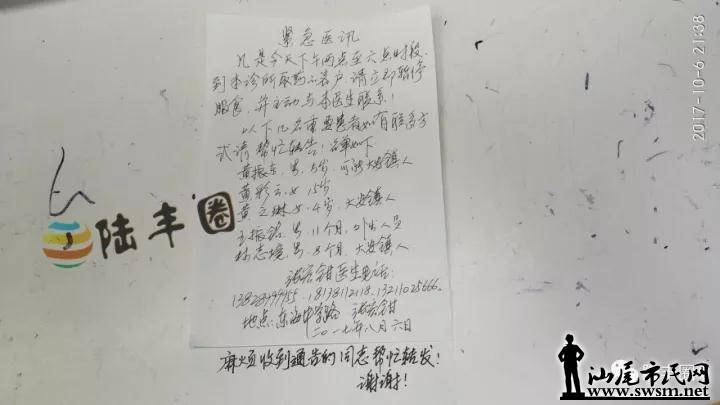 紧急医讯
凡是今天下午两点至六点时段,
到本诊所取药之客户,请立即暂停
服食,并主动与本医生联系!
以下几名重要患者如有联系方
式请帮忙转告,名单如下
黄振东,男,5岁,可能大安镇人
黄彩云,女,15岁
黄之琳,女,4岁,大安镇人
王振铭,男,11个月,外出人员
林志境,男,8个月,大安镇人
医生电话:
13828999955.18138112118.13211025666。
地点:东海中学路
二〇一七年八月六日
麻烦收到通告的同志帮忙转发!
谢谢!
陆丰圈
2017-10-6 21:38
汕尾市民网
www.swsm.net